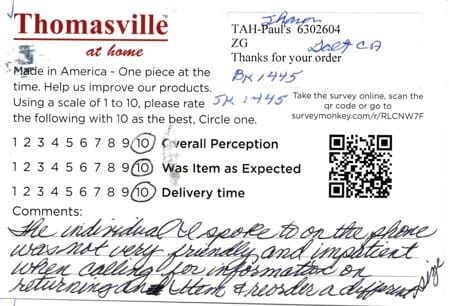 Thomasville
at home
TAH-Paul's 6302604
ZG
Thanks for your order
Made in America - One piece at the
time. Help us improve our products.
Using a scale of 1 to 10, please rate
the following with 10 as the best, Circle one.
Sharon
Galt CA
BK 1445
SK 1445
Take the survey online, scan the
qr code or go to
surveymonkey.com/r/RLCNW7F
1 2 3 4 5 6 7 8 9 10 Overall Perception
1 2 3 4 5 6 7 8 9 10 Was Item as Expected
1 2 3 4 5 6 7 8 9 10 Delivery time
Comments:
The individual I spoke to on the phone
was not very friendly and impatient
when calling for information on
returning an Item & reorder a different size